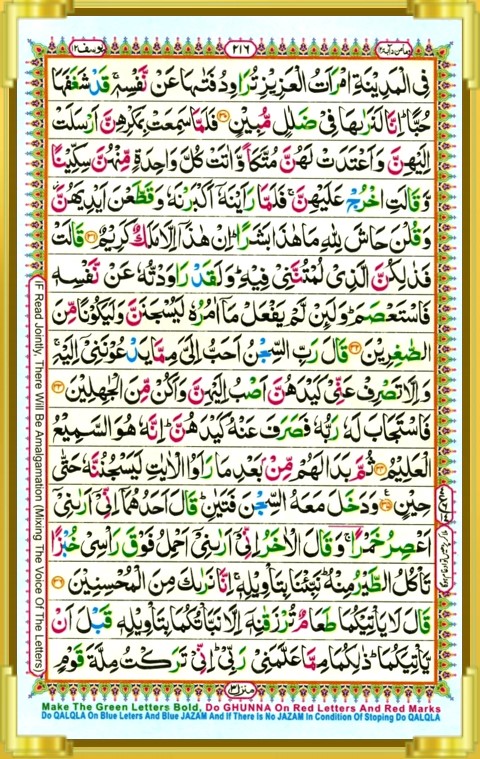 وما من دآبة ١٢
٢١٦
يوسف ١٢
فِى الْمَدِيْنَةِ امْرَاَتُ الْعَزِيْزِ تُرَاوِدُ فَتٰىهَا عَنْ نَّفْسِهٖ ۚ قَدْ شَغَفَهَا
حُبًّا ؕ اِنَّا لَنَرٰىهَا فِىْ ضَلٰلٍ مُّبِيْنٍ ۝٣٠ فَلَمَّا سَمِعَتْ بِمَكْرِهِنَّ اَرْسَلَتْ
اِلَيْهِنَّ وَاَعْتَدَتْ لَهُنَّ مُتَّكَاً وَّاٰتَتْ كُلَّ وَاحِدَةٍ مِّنْهُنَّ سِكِّيْنًا
وَّقَالَتِ اخْرُجْ عَلَيْهِنَّ ۚ فَلَمَّا رَاَيْنَهٗۤ اَكْبَرْنَهٗ وَقَطَّعْنَ اَيْدِيَهُنَّ
وَقُلْنَ حَاشَ لِلّٰهِ مَا هٰذَا بَشَرًا ؕ اِنْ هٰذَاۤ اِلَّا مَلَكٌ كَرِيْمٌ ۝٣١ قَالَتْ
فَذٰلِكُنَّ الَّذِىْ لُمْتُنَّنِىْ فِيْهِ ؕ وَلَقَدْ رَاوَدْتُّهٗ عَنْ نَّفْسِهٖ
فَاسْتَعْصَمَ ؕ وَلَئِنْ لَّمْ يَفْعَلْ مَاۤ اٰمُرُهٗ لَيُسْجَنَنَّ وَلَيَكُوْنًا مِّنَ
الصّٰغِرِيْنَ ۝٣٢ قَالَ رَبِّ السِّجْنُ اَحَبُّ اِلَىَّ مِمَّا يَدْعُوْنَنِىْۤ اِلَيْهِ ۚ
وَاِلَّا تَصْرِفْ عَنِّىْ كَيْدَهُنَّ اَصْبُ اِلَيْهِنَّ وَاَكُنْ مِّنَ الْجٰهِلِيْنَ ۝٣٣
فَاسْتَجَابَ لَهٗ رَبُّهٗ فَصَرَفَ عَنْهُ كَيْدَهُنَّ ؕ اِنَّهٗ هُوَ السَّمِيْعُ
الْعَلِيْمُ ۝٣٤ ثُمَّ بَدَا لَهُمْ مِّنْۢ بَعْدِ مَا رَاَوُا الْاٰيٰتِ لَيَسْجُنُنَّهٗ حَتّٰى
حِيْنٍ ۝٣٥ وَدَخَلَ مَعَهُ السِّجْنَ فَتَيٰنِ ؕ قَالَ اَحَدُهُمَاۤ اِنِّىْۤ اَرٰىنِىْۤ
اَعْصِرُ خَمْرًا ۚ وَقَالَ الْاٰخَرُ اِنِّىْۤ اَرٰىنِىْۤ اَحْمِلُ فَوْقَ رَاْسِىْ خُبْزًا
تَاْكُلُ الطَّيْرُ مِنْهُ ؕ نَبِّئْنَا بِتَاْوِيْلِهٖ ۚ اِنَّا نَرٰىكَ مِنَ الْمُحْسِنِيْنَ ۝٣٦
قَالَ لَا يَاْتِيْكُمَا طَعَامٌ تُرْزَقٰنِهٖۤ اِلَّا نَبَّاْتُكُمَا بِتَاْوِيْلِهٖ قَبْلَ اَنْ
يَّاْتِيَكُمَا ؕ ذٰلِكُمَا مِمَّا عَلَّمَنِىْ رَبِّىْ ؕ اِنِّىْ تَرَكْتُ مِلَّةَ قَوْمٍ
منزل ٣
IF Read Jointly, There Will Be Amalgamation (Mixing The Voice Of The Letters)
Make The Green Letters Bold, Do GHUNNA On Red Letters And Red Marks
Do QALQLA On Blue Leters And Blue JAZAM And If There Is No JAZAM In Condition Of Stoping Do QALQLA